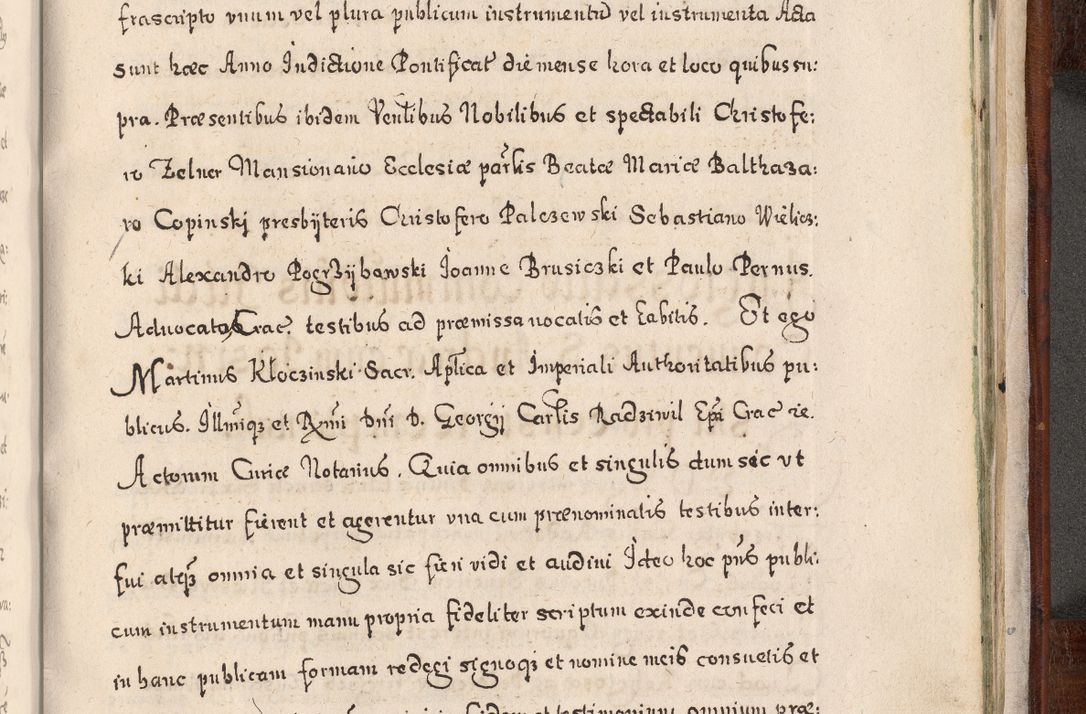 frascripto vnum vel plura publicum instrumentũ vel instrumenta Acta
sunt hæc Anno Indictione Pontificat̃ die mense hora et loco quibus su:
pra. Præsentibus ibidem Ven̄libus Nobilibus et spectabili Christofe:
ro Zelner Mansionario Ecclesiæ par̃lis Beatæ Mariæ Balthaza:
ro Copinskj presbÿteris Christofero Palczewski Sebastiano Wielicz:
ki Alexandro Pogrzÿbowski Joanne Brusiczki et Paulo Pernus.
Aduocatos Crac̃. testibus ad præmissa uocatis et habitis. Et ego
Martinus Kłoczinski Sacr. Apl̃ica et Imperiali Authoritatibus pu:
blicus. Ill̃miqȝ et Rm̃i Dñi D. Georgij Car̃lis Radziwil Ep̃i Crac̃ re.
Actorum Curiæ Notarius. Quia omnibus et singulis dum sic vt
præmittitur fierent et agerentur vna cum prænominatis testibus inter:
fui atqȝ omnia et singula sic fieri vidi et audiui Ideo hoc pñs publi:
cum instrumentum manu propria fideliter scriptum exinde confeci et
in hanc publicam formam redegi signoqȝ et nomine meis consuetis et
fidem et testimonium omnium præ: